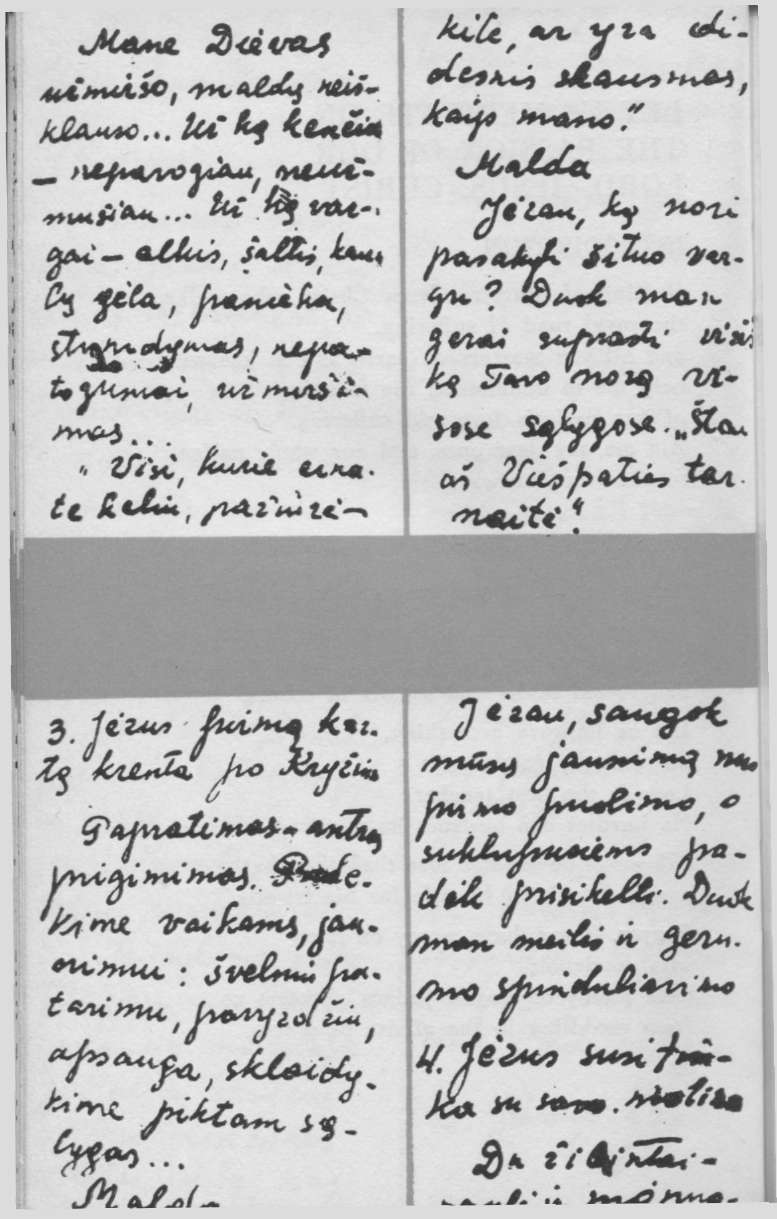 Mane Dievas
užmiršo, maldų neiš-
klauso... Už ką kenčia
– nepavogiau, neuž-
mušiau... Už ką var-
gai – alkis, šaltis, kau
lų gėla, panieka,
stumdymas, nepa-
togumai, užmirši-
mas...
"Visi, kurie eina-
te keliu, pažiūrė-
kite, ar yra di-
desnis skausmas,
kaip mano."
Malda
Jėzau, ką nori
pasakyti šituo var-
gu? Duok man
gerai suprasti visiš
ką Tavo norą vi-
sose sąlygose. „Štai
aš Viešpaties tar-
naitė".
3. Jėzus pirmą kar-
tą krenta po Kryžiu
Papratimas - antras
prigimimas.
kime vaikams, jau-
nimui: švelniu pa-
tarimu, pavyzdžiu,
apsauga, sklaidy-
kime piktam są-
lygas...
Malda
Jėzau, saugok
mūsų jaunimą nuo
pirmo puolimo, o
suklupusiems pa-
dėk prisikelti. Duok
man meilės ir geru-
mo spinduliavimo
4. Jėzus susitin-
ka su savo motina
Du